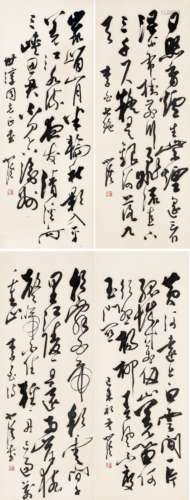 日照香炉生紫烟遥看
瀑布挂前川飞流直下
三千尺疑是银河落九
天 李白诗
峨眉山月半轮秋影入平
羌江水流夜发清溪向
三峡思君不见下渝州
同志正
黄河远上白云间一片
孤城万仞山羌笛何
须怨杨柳春风不度
玉门关
朝辞白帝彩云间千
里江陵一日还两岸猿
声啼不住轻舟已过万
重山 李白诗